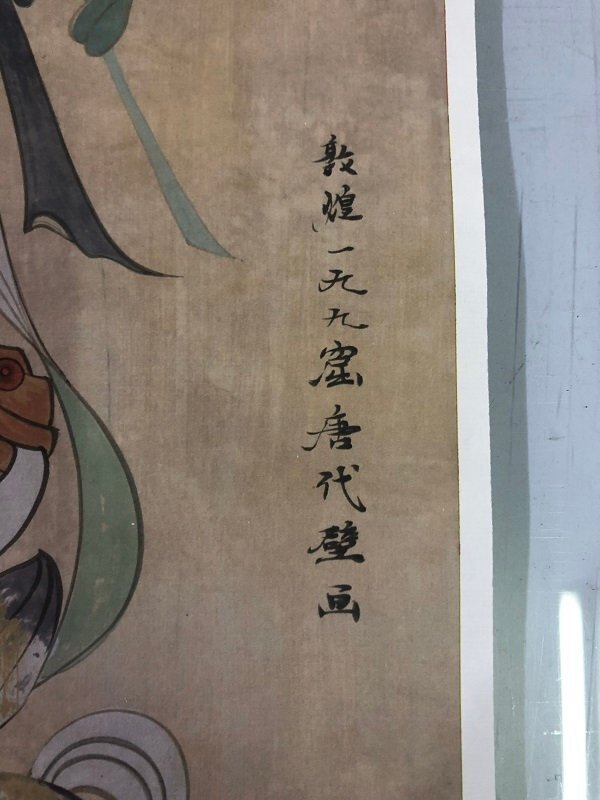 敦煌一九九窟唐代壁画